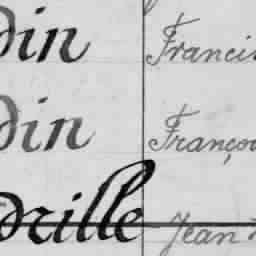 din Franci
din Franço
drille Jean